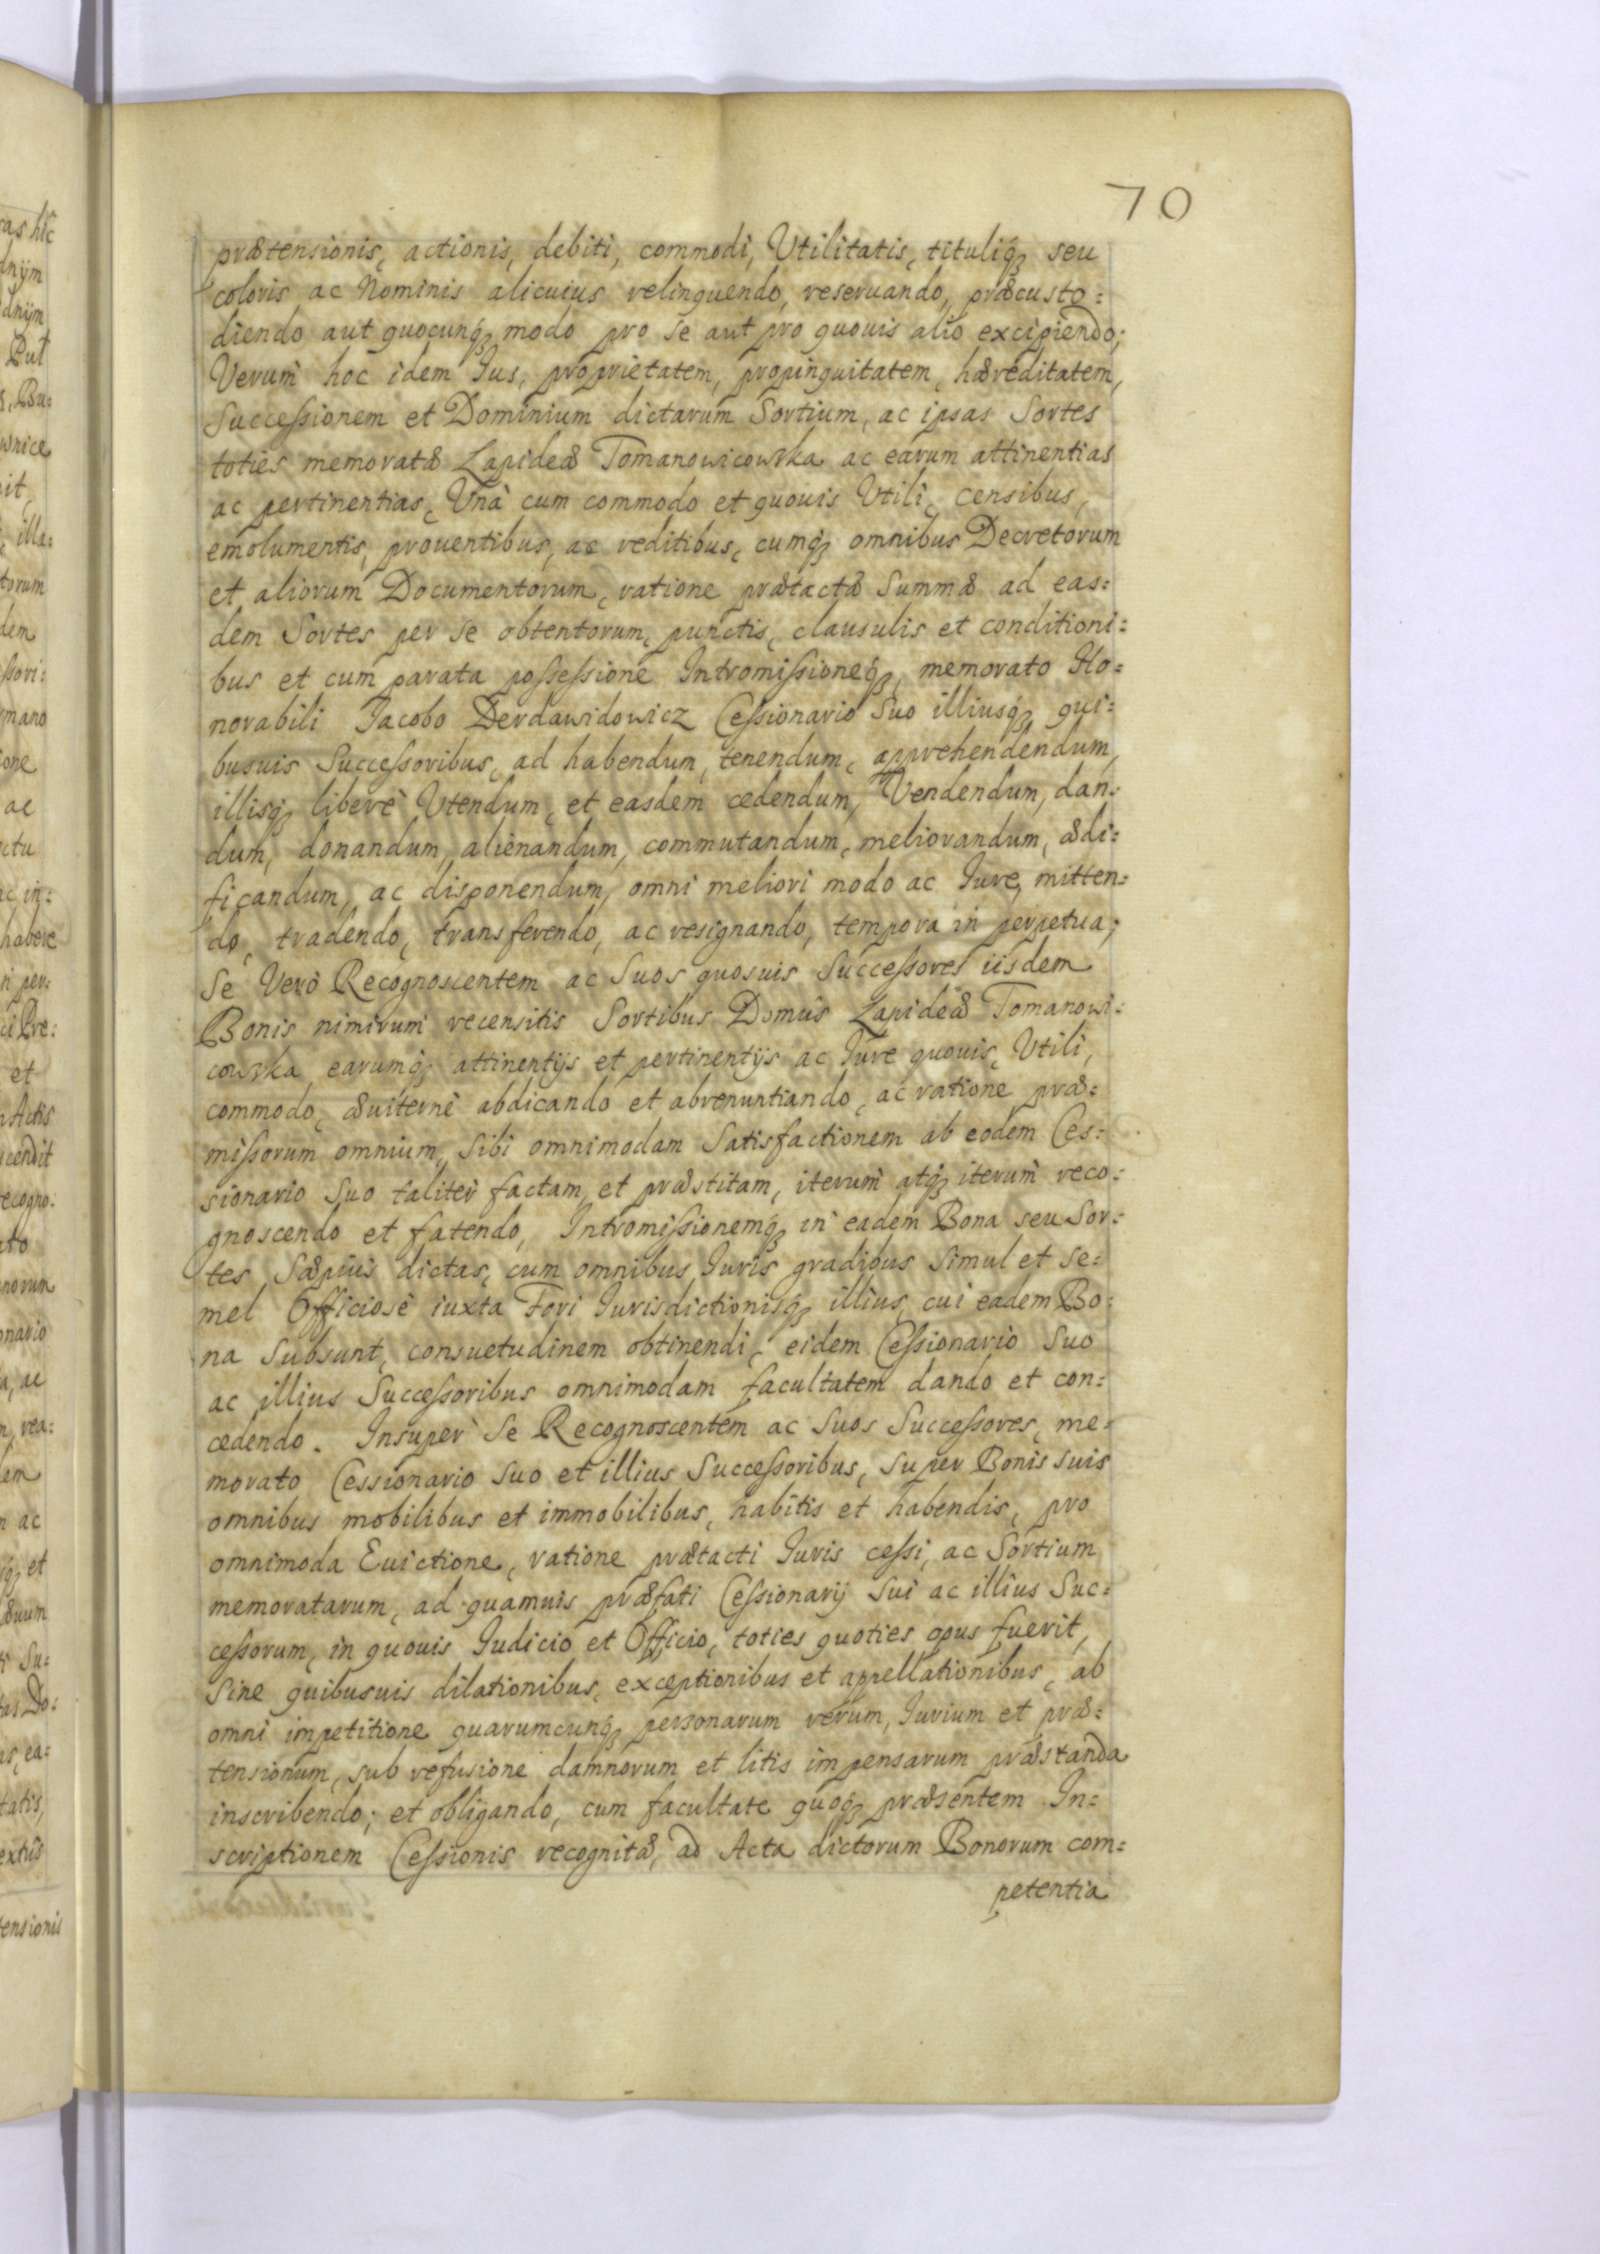 70
prætensionis, actionis, debiti, commodi, Vtilitatis, tituliq́ꝫ seu
coloris ac Nominis alicuius relinquendo, reseruando, præcusto=
diendo aut quocunq́ꝫ modo pro se aut pro quouis alio excipiendo;
Verum hoc idem Jus, proprietatem, propinquitatem, hæreditatem,
Successionem et Dominium dictarum Sortium, ac ipsas Sortes
toties memoratæ Lapideæ Tomanowicowska ac earum attinentias
ac pertinentias, Vnà cum commodo et quouis Vtili, censibus,
emolumentis, prouentibus, ac reditibus, cumq́ꝫ omnibus Decretorum
et aliorum Documentorum, ratione prætactæ Summæ ad eas=
dem Sortes per se obtentorum, punctis, clausulis et conditioni=
bus et cum parata possessione Intromissioneq́ꝫ, memorato Ho=
norabili Jacobo Derdawidowicz Cessionario Suo illiusq́ꝫ qui=
busuis Successoribus, ad habendum, tenendum, apprehendendum,
illisq́ꝫ liberè Vtendum, et easdem cedendum, Vendendum, dan=
dum, donandum, alienandum, commutandum, meliorandum, ædi=
ficandum, ac disponendum, omni meliori modo ac Jure, mitten=
do, tradendo, transferendo, ac resignando, tempora in perpetua;
Se Verò Recognoscentem ac Suos quosuis Successores iisdem
Bonis nimirum recensitis Sortibus Domûs Lapideæ Tomanowi=
cowska earumq́ꝫ attinentijs et pertinentijs ac Jure quouis, Vtili,
commodo, æuiternè abdicando et abrenuntiando, ac ratione præ=
missorum omnium, Sibi omnimodam Satisfactionem ab eodem Ces=
sionario Suo taliter factam, et præstitam, iterum atq́ꝫ iterum reco=
gnoscendo et fatendo, Intromissionemq́ꝫ in eadem Bona seu Sor=
tes Sæpiùs dictas, cum omnibus Juris gradibus Simul et Se=
mel Officiosè iuxta Fori Jurisdictionisq́ꝫ illius, cui eadem Bo=
na Subsunt, consuetudinem obtinendi, eidem Cessionario Suo
ac illius Successoribus omnimodam facultatem dando et con=
cedendo. Insuper Se Recognoscentem ac Suos Successores, me=
morato Cessionario Suo et illius Successoribus, Super Bonis suis
omnibus mobilibus et immobilibus, habitis et habendis, pro
omnimoda Euictione, ratione prætacti Juris cessi, ac Sortium
memoratarum, ad quamuis præfati Cessionarij Sui ac illius Suc=
cessorum, in quouis Judicio et Officio, toties quoties opus fuerit,
Sine quibusuis dilationibus, exceptionibus et appellationibus, ab
omni impetitione quarumcunq́ꝫ personarum rerum, Jurium et præ=
tensionum, sub refusione damnorum et litis impensarum præstanda
inscribendo; et obligando, cum facultate quoq́ꝫ præsentem In=
scriptionem Cessionis recognitæ, ad Acta dictorum Bonorum com=
petentia